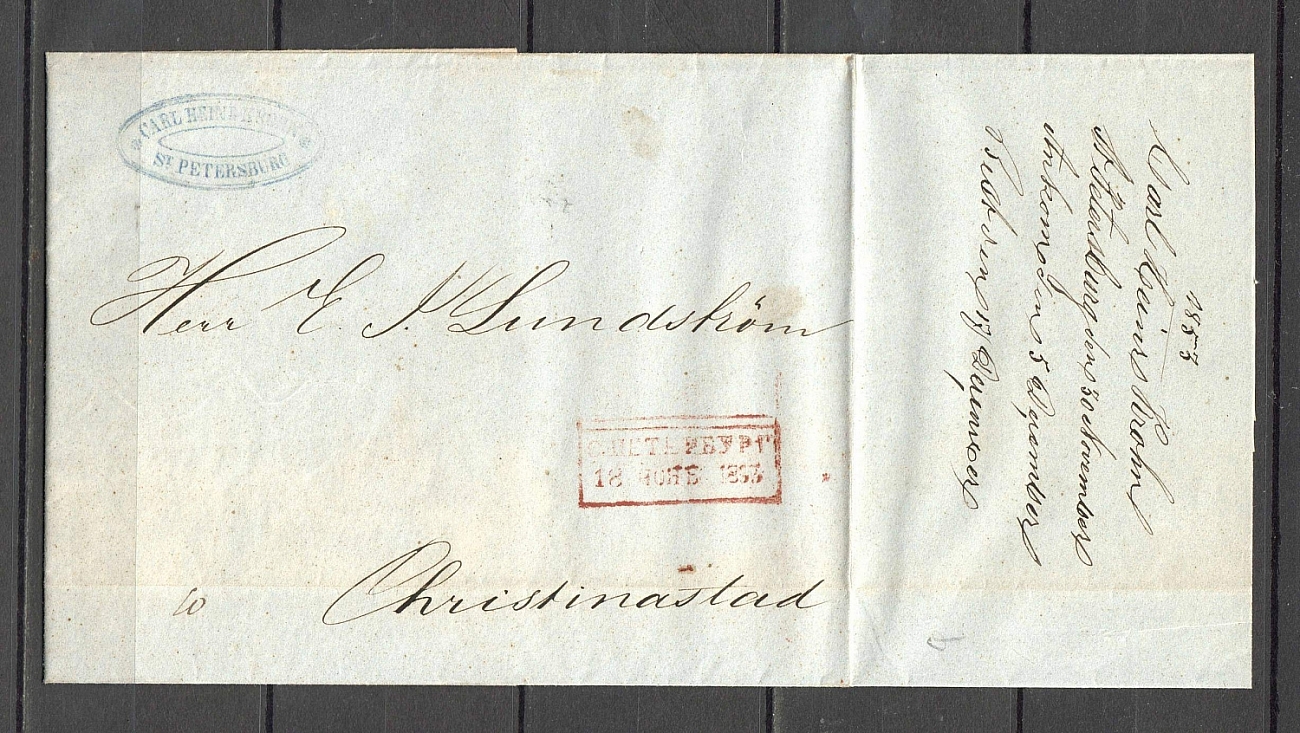 CARL HEINR. KROHN
ST PETERSBURG
Herr E. J. Lundström
С.ПЕТЕРБУРГ
18 НОЯБ 1853
Christinastad
10
1853
Carl Heinr Krohn
St Petersburg den 30 November
Ankom den 5 December
den 17 December